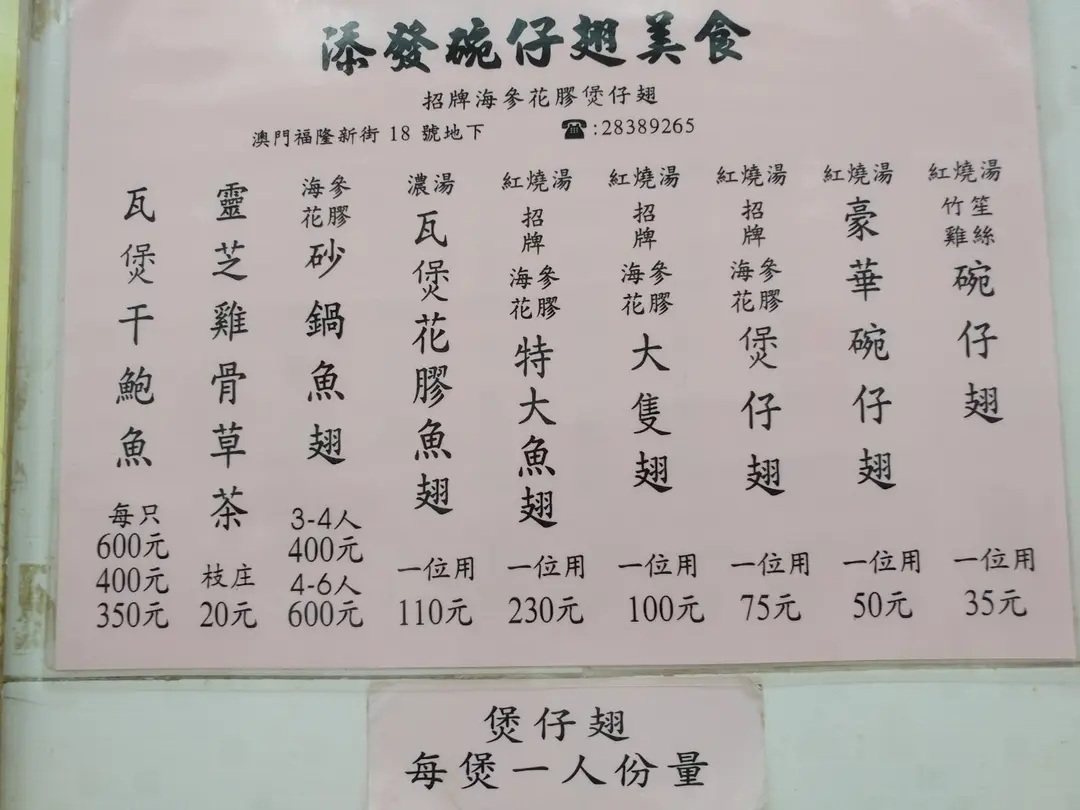 添發碗仔翅美食
招牌海參花膠煲仔翅
澳門福隆新街 18 號地下 ☎:28389265
紅燒湯 竹笙雞絲 碗仔翅 一位用 35元
紅燒湯 豪華碗仔翅 一位用 50元
紅燒湯 招牌 海參花膠 煲仔翅 一位用 75元
紅燒湯 招牌 海參花膠 大隻翅 一位用 100元
紅燒湯 招牌 海參花膠 特大魚翅 一位用 230元
濃湯 瓦煲花膠魚翅 一位用 110元
海參花膠 砂鍋魚翅 3-4人 400元 4-6人 600元
靈芝雞骨草茶 枝庄 20元
瓦煲干鮑魚 每只 600元 400元 350元
煲仔翅
每煲一人份量